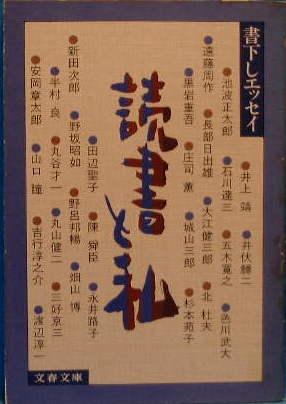 書下しエッセイ
読書と私
井上 靖
井伏鱒二
池波正太郎
石川達三
五木寛之
色川武大
遠藤周作
長部日出雄
大江健三郎
北 杜夫
黒岩重吾
庄司 薫
城山三郎
杉本苑子
田辺聖子
陳 舜臣
永井路子
新田次郎
野坂昭如
野呂邦暢
畑山 博
半村 良
丸谷才一
丸山健二
三好京三
安岡章太郎
山口 瞳
吉行淳之介
渡辺淳一
文春文庫